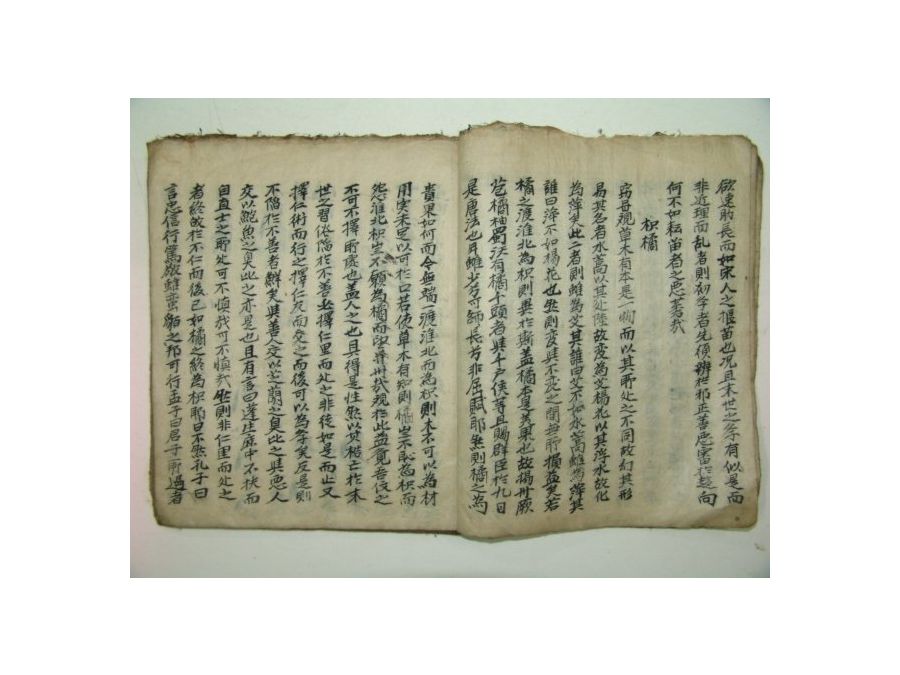 欲速助長而如宋人之揠苗也况且末世之学有似是而
非近理而乱者則初学者先須辨於邪正善惡審於趍向
何不如耘苗者之思茅哉
枳橘
窃甞観草木有本是一物而以其所处之不同故幻其形
易其名者水蒿以其处陸故变為艾楊花以其浮水故化
為萍矣此二者則雖為艾其誰曰艾不如水蒿雖為萍其
誰曰萍不如楊花也然則变與不变之間無所損益矣若
橘之渡淮北為枳則異於斯盖橘本是美果也故揚州厥
苞橘柚蜀漢有橘千頭者與千户侯等且賜群臣於九日
是唐法也年雖少可師長者非屈賦耶然則橘之為
貴果如何而令無端一渡淮北而為枳則木不可以為材
用实未足以可於口若使草木有知則橘豈不恥為枳而
怨淮北枳豈不願為橘而
不可不擇所处也盖人之也具得是性然以梏亡於末
世之習俗陷於不善必擇仁里而处之非徒如是而止又
擇仁術而行之擇仁友而交之而後可以為学矣反是則
不陷於不善者鮮矣與善人交以芝蘭之臭比之與惡人
交以鮑魚之臭比之亦是也且有言曰蓬生麻中不扶而
自直士之所处可不慎哉可不慎哉然則非仁里而处之
者終於不仁而後已如橘之終為枳耶曰不然孔子曰
言忠信行篤敬雖蛮貊之邦可行孟子曰君子所過者